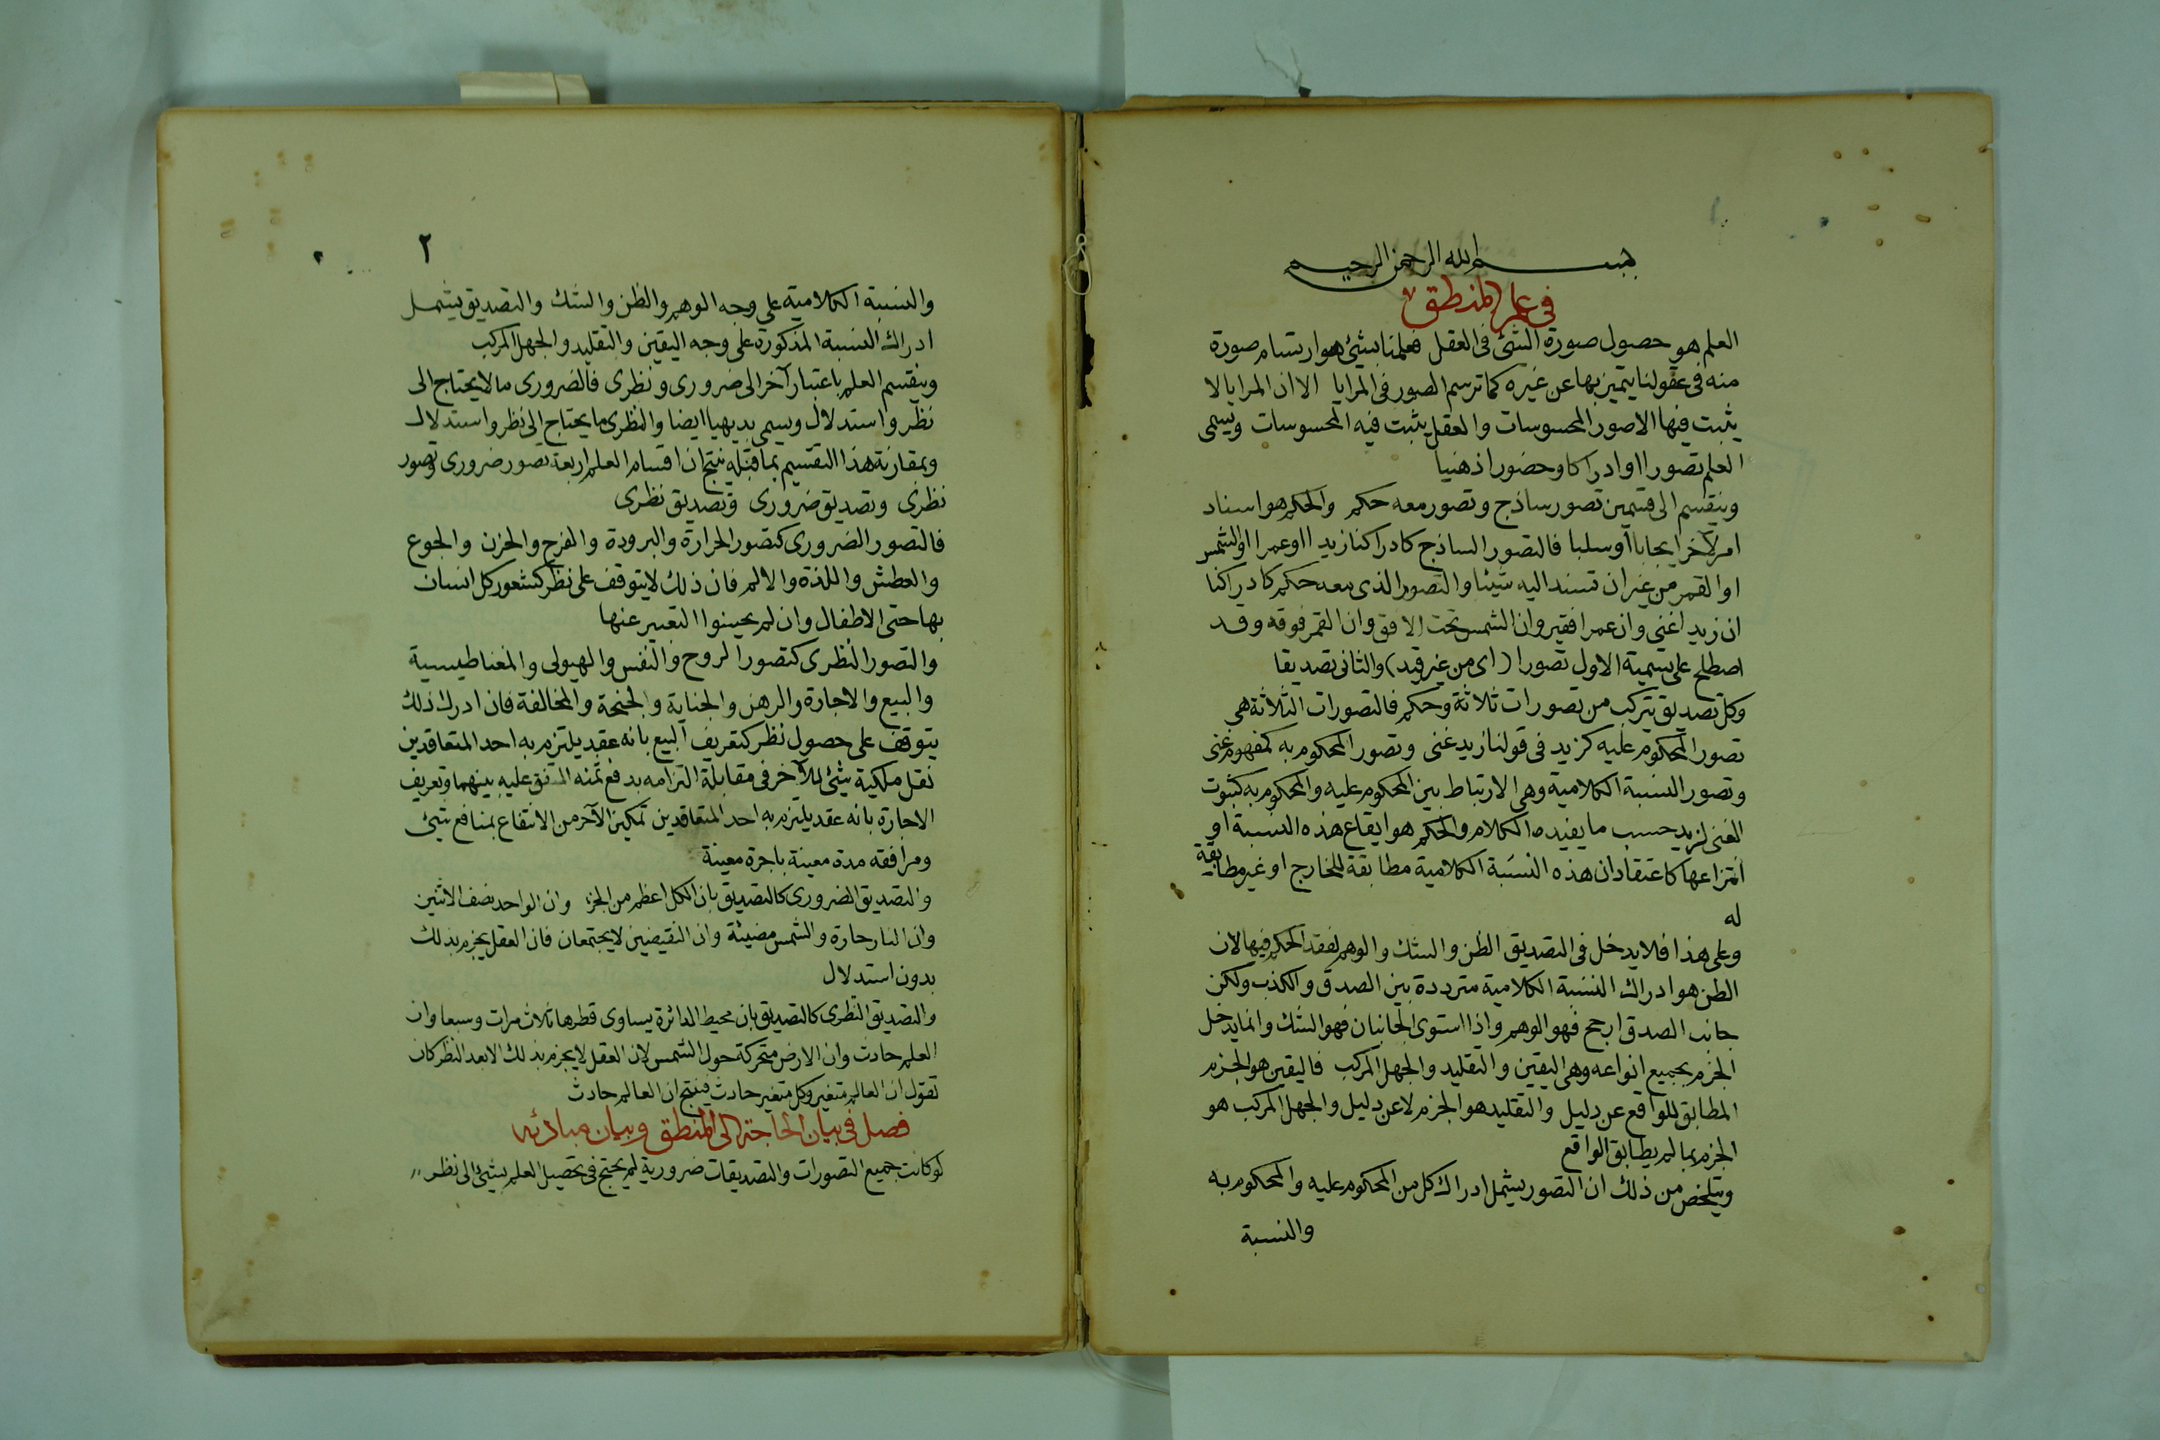 بسم الله الرحمن الرحيم
في علم المنطق
العلم هو حصول صورة الشئ فى العقل فعلمنا بشئ هو ارتسام صورة
منه فى عقولنا يتميز بها عن غيره كما ترسم الصور فى المرايا الا ان المرايا لا
يثبت فيها الا صور المحسوسات والعقل يثبت فيه المحسوسات ويسمى
العلم تصورا او ادراكا وحضورا ذهنيا
وينقسم الى قسمين تصور ساذج وتصور معه حكم والحكم هو اسناد
امر لآخر ايجابا أو سلبا فالتصور الساذج كادراكنا زيدا او عمرا او الشمس
او القمر من غير ان تسند اليه شيئا والتصور الذى معه حكم كادراكنا
ان زيدا غنى وان عمرا فقير وان الشمس تحت الافق وان القمر فوقه وقد
اصطلح على تسمية الاول تصورا (اى من غير قيد) والثانى تصديقا
وكل تصديق يتركب من تصورات ثلاثة وحكم فالتصورات الثلاثة هى
تصور المحكوم عليه كزيد فى قولنا زيد غنى وتصور المحكوم به كمفهوم غنى
وتصور النسبة الكلامية وهى الارتباط بين المحكوم عليه والمحكوم به كثبوت
الغنى لزيد حسب ما يفيده الكلام والحكم هو ايقاع هذه النسبة او
انتزاعها كاعتقاد ان هذه النسبة الكلامية مطابقة للخارج او غير مطابقة
له
وعلى هذا فلا يدخل فى التصديق الظن والشك والوهم لفقد الحكم فيها لان
الظن هو ادراك النسبة الكلامية مترددة بين الصدق والكذب ولكن
جانب الصدق ارجح فهو الوهم واذا استوى الجانبان فهو الشك وانما يدخل
الجزم بجميع انواعه وهى اليقين والتقليد والجهل المركب فاليقين هو الجزم
المطابق للواقع عن دليل والتقليد هو الجزم لا عن دليل والجهل المركب هو
الجزم بما لم يطابق الواقع
ويتلخص من ذلك ان التصور يشمل ادراك كل من المحكوم عليه والمحكوم به
والنسبة
٢
والنسبة الكلامية على وجه الوهم والظن والشك والتصديق يشمل
ادراك النسبة المذكورة على وجه اليقين والتقليد والجهل المركب
وينقسم العلم باعتبار آخر الى ضرورى ونظرى فالضرورى ما لا يحتاج الى
نظر واستدلال ويسمى بديهيا ايضا والنظرى ما يحتاج الى نظر واستدلال
وبمقارنة هذا التقسيم بما قبله ينتج ان اقسام العلم اربعة تصور ضرورى وتصور
نظرى وتصديق ضرورى وتصديق نظرى
فالتصور الضرورى كتصور الحرارة والبرودة والفرح والحزن والجوع
والعطش واللذة والالم فان ذلك لا يتوقف على نظر كشعور كل انسان
بها حتى الاطفال وان لم يحسنوا التعبير عنها
والتصور النظرى كتصور الروح والنفس والهيولى والمغناطيسية
والبيع والاجارة والرهن والجناية والجنحة والمخالفة فان ادراك ذلك
يتوقف على حصول نظر كتعريف البيع بانه عقد يلتزم به احد المتعاقدين
نقل ملكية شئ للآخر فى مقابلة التزامه بدفع ثمنه المتفق عليه بينهما وتعريف
الاجارة بانه عقد يلتزم به احد المتعاقدين تمكين الآخر من الانتفاع بمنافع شئ
ومرافقه مدة معينة باجرة معينة
والتصديق الضرورى كالتصديق بان الكل اعظم من الجزء وان الواحد نصف الاثنين
وان النار حارة والشمس مضيئة وان النقيضين لا يجتمعان فان العقل يجزم بذلك
بدون استدلال
والتصديق النظرى كالتصديق بان محيط الدائرة يساوى قطرها ثلاث مرات وسبعا وان
العلم حادث وان الارض متحركة حول الشمس لان العقل لا يجزم بذلك الا بعد النظر كان
تقول ان العالم متغير وكل متغير حادث فينتج ان العالم حادث
فصل فى بيان الحاجة الى المنطق وبيان مبادئه
لو كانت جميع التصورات والتصديقات ضرورية لم يحتج فى تحصيل العلم بشئ الى نظر